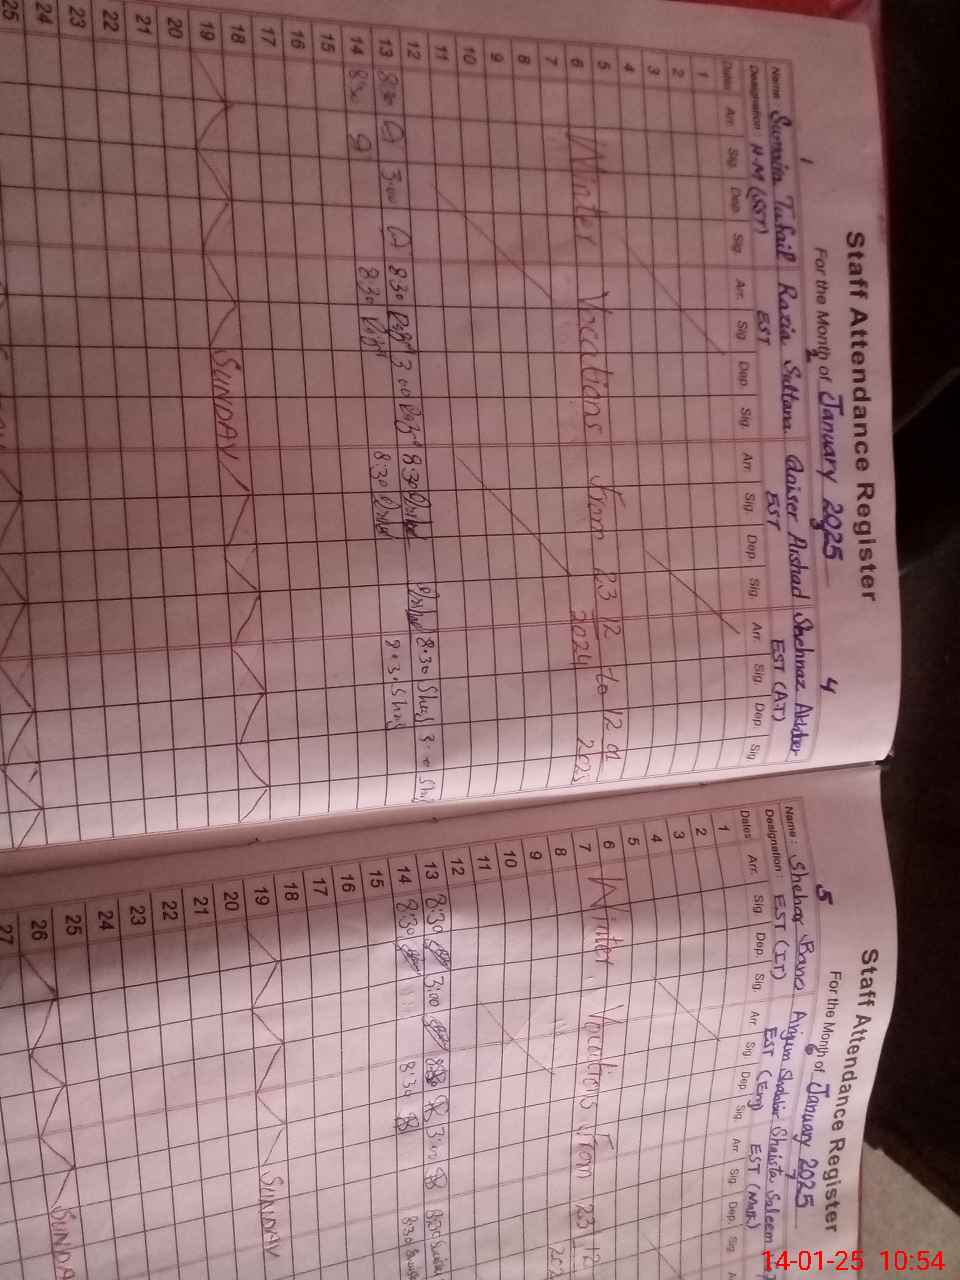 Staff Attendance Register
For the Month of January 2025
1 2 3 4
Name: Sumaira Tufail Razia Sultana Qaiser Arshad Shehnaz Akhter
Designation: H-M (SST) EST EST EST (AT)
Dates Arr. Sig. Dep. Sig. Arr. Sig. Dep. Sig. Arr. Sig. Dep. Sig. Arr. Sig. Dep. Sig.
1
2
3
4
5 Winter Vocations from 23 12 2024 to 12 01 2025
6
7
8
9
10
11
12
13 8:30 3:00 8:30 3:00 8:30 8:30 3:0
14 8:30 8:30 8:30 8:30
15
16
17
18
19 SUNDAY
20
21
22
23
24
25
Staff Attendance Register
For the Month of January 2025
5 6 7
Name: Shehar Bano Anjum Shabbir Shaista Saleem
Designation: EST (IT) EST (Eng) EST (Math)
Dates Arr. Sig. Dep. Sig. Arr. Sig. Dep. Sig. Arr. Sig. Dep. Sig.
1
2
3
4
5
6 Winter Vocations from 23 12
7
8
9
10
11
12
13 8:30 3:00 8:30 3:00 8:30
14 8:30 8:30 8:30
15
16
17
18
19 SUNDAY
20
21
22
23
24
25
26 SUNDA
27
14-01-25 10:54